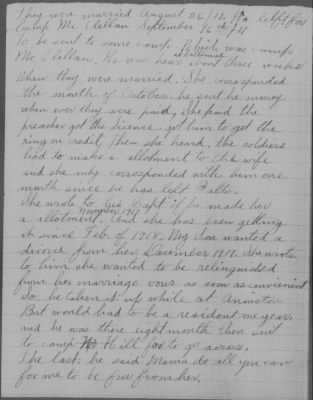 They were married August 26/17. He left for
Camp Mc Clellan September 16th/17
To be sent to some camp. Which was camp
Mc Clellan. He was near Baltimore wont three weeks
when they were married. She corresponded
the month of October. he sent he money
when ever they were paid, She paid the
preacher got the licence, got him to get the
ring on credit, then she heard, the soldiers
had to make a allotment to the wife
and she only corresponded with him one
month since he has left Balto.
She wrote to his Capt if he made her
a allotment. November 1917 And she has been getting
it since Feb. of 1918. My Son wanted a
divorce from her December 1917. She wrote
to him she wanted to be relinguished
from her marriage vows as soon as convenient
So, he taken it up while at Anniston
But would had to be a resident one year.
and he was there eight month then sent
to camp Hill for to go across.
The last, he said Mama do all you can
for me to be free from her.